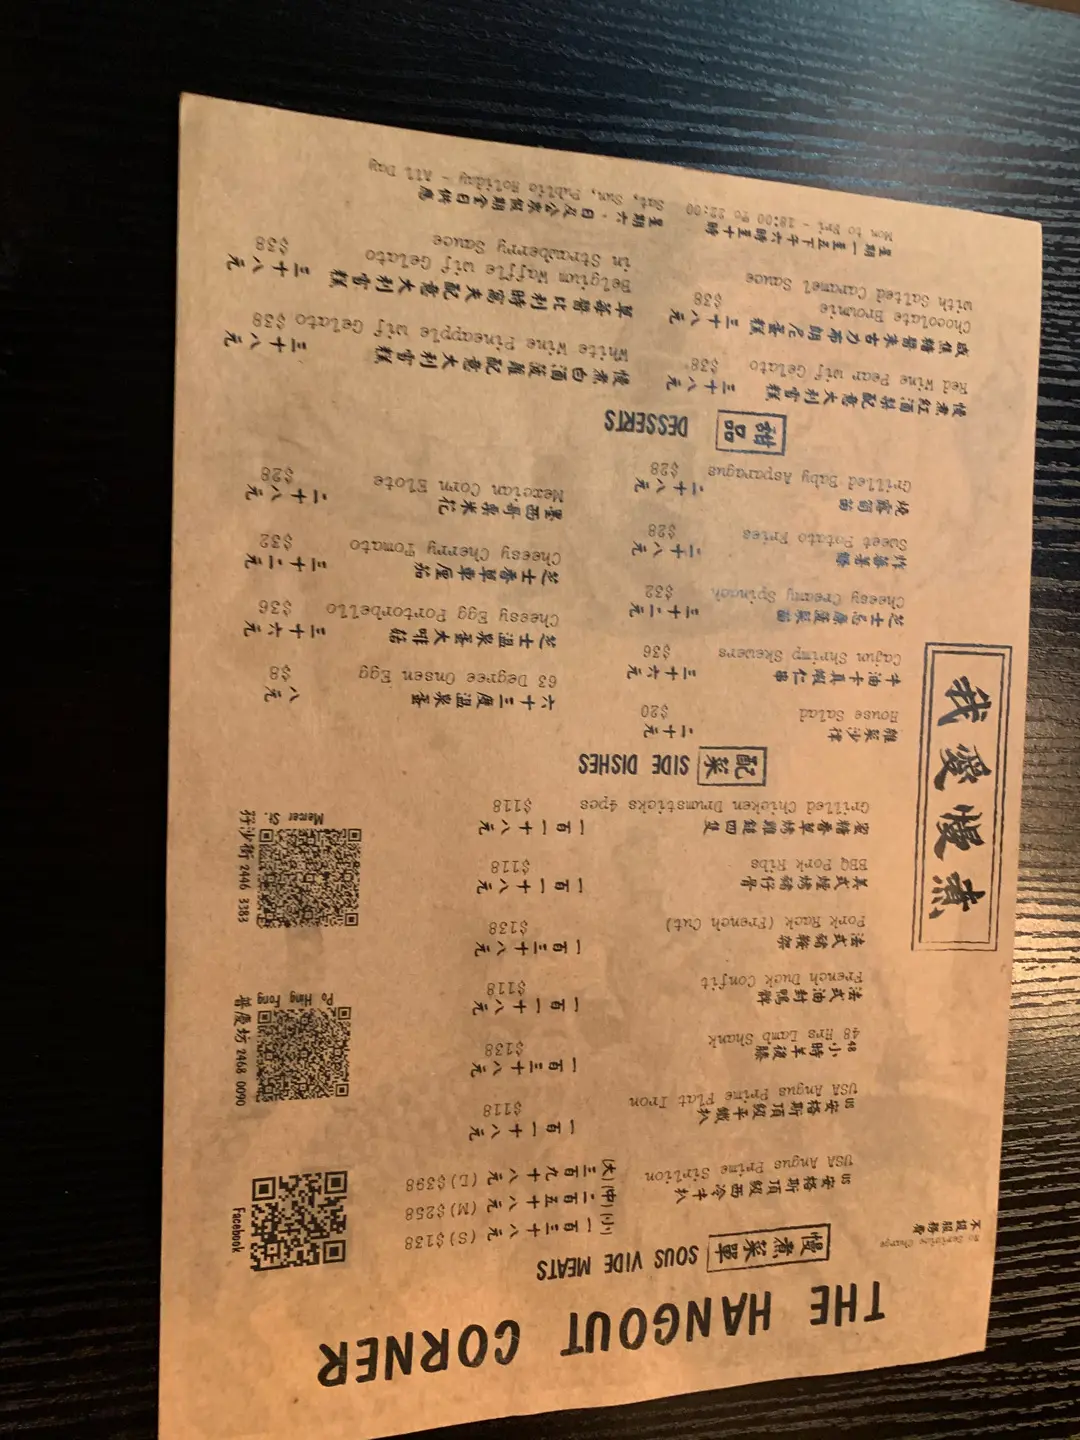 THE HANGOUT CORNER
我愛慢煮
不設服務費
No Serivice Charge
慢煮菜單 SOUS VIDE MEATS
US安格斯頂級西冷牛扒
USA Angus Prime Sirlion
(小) 一百三十八元 (S) $138
(中) 二百五十八元 (M) $258
(大) 三百九十八元 (L) $398
US安格斯頂級平鐵扒 一百一十八元
USA Angus Prime Flat Iron $118
48小時羊後膝 一百三十八元
48 Hrs Lamb Shank $138
法式油封鴨髀 一百一十八元
French Duck Confit $118
法式豬鞍架 一百三十八元
Pork Rack (French Cut) $138
美式燒烤豬仔骨 一百一十八元
BBQ Pork Ribs $118
蜜糖香草烤雞鎚四隻 一百一十八元
Grilled Chicken Drumsticks 4pcs $118
Facebook
普慶坊 2468 0090
Po Hing Fong
孖沙街 2446 3383
Mercer St.
配菜 SIDE DISHES
雜菜沙律 二十元
House Salad $20
牛油卡真蝦仁串 三十六元
Cajun Shrimp Skewers $36
芝士忌廉菠菜苗 三十二元
Cheesy Creamy Spinach $32
炸蕃薯條 二十八元
Sweet Potato Fries $28
燒露筍苗 二十八元
Grilled Baby Asparagus $28
六十三度溫泉蛋 八元
63 Degree Onsen Egg $8
芝士溫泉蛋大啡菇 三十六元
Cheesy Egg Portorbello $36
芝士香草車厘茄 三十二元
Cheesy Cherry Tomato $32
墨西哥粟米花 二十八元
Mexcian Corn Elote $28
甜品 DESSERTS
慢煮紅酒梨配意大利雪糕 三十八元
Red Wine Pear wif Gelato $38
咸焦糖醬朱古力布朗尼蛋糕 三十八元
Chocolate Brownie $38
with Salted Caramel Sauce
慢煮白酒菠蘿配意大利雪糕 三十八元
White Wine Pineapple wif Gelato $38
草莓醬比利時窩夫配意大利雪糕 三十八元
Belgium Waffle wif Gelato $38
in Strawberry Sauce
星期一至五下午六時至十時
Mon to Fri - 18:00 to 22:00
星期六、日及公眾假期全日供應
Sat, Sun, Public Holiday - All Day